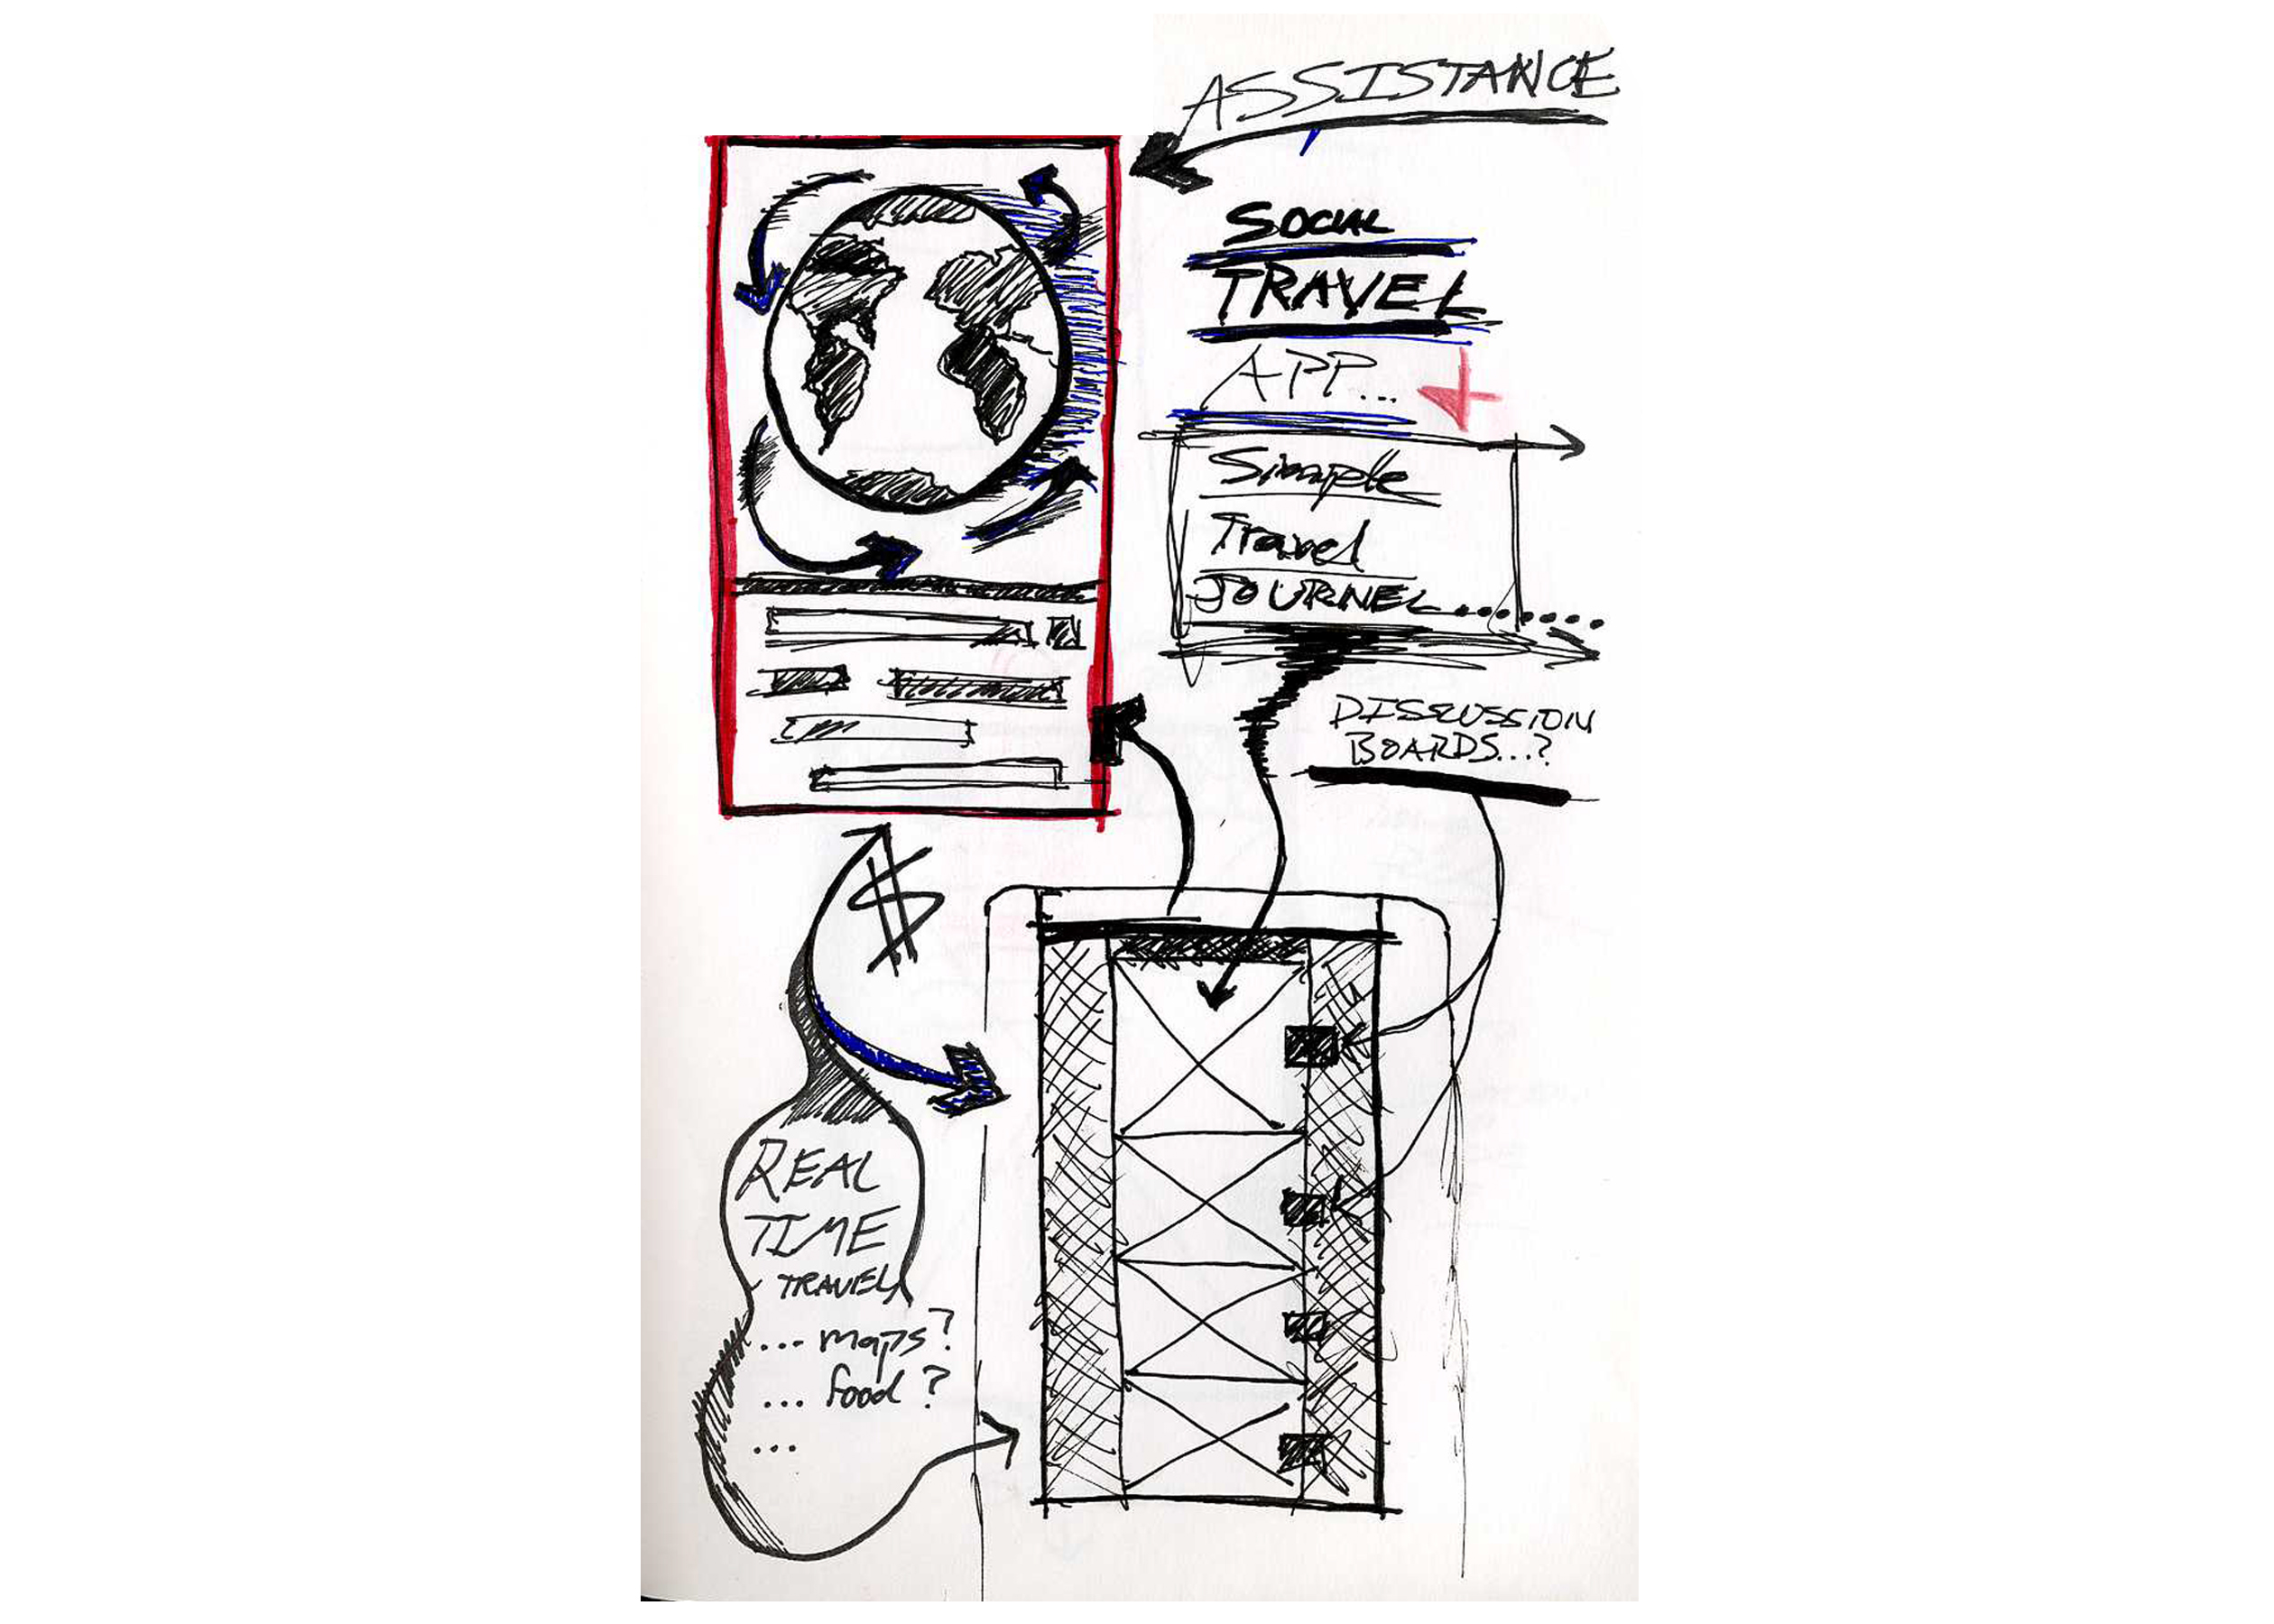 ASSISTANCE
SOCIAL
TRAVEL
APP...
Simple
Travel
JOURNEL.......
DISSCUSSION
BOARDS...?
$
REAL
TIME
TRAVEL
... maps?
... food?
...